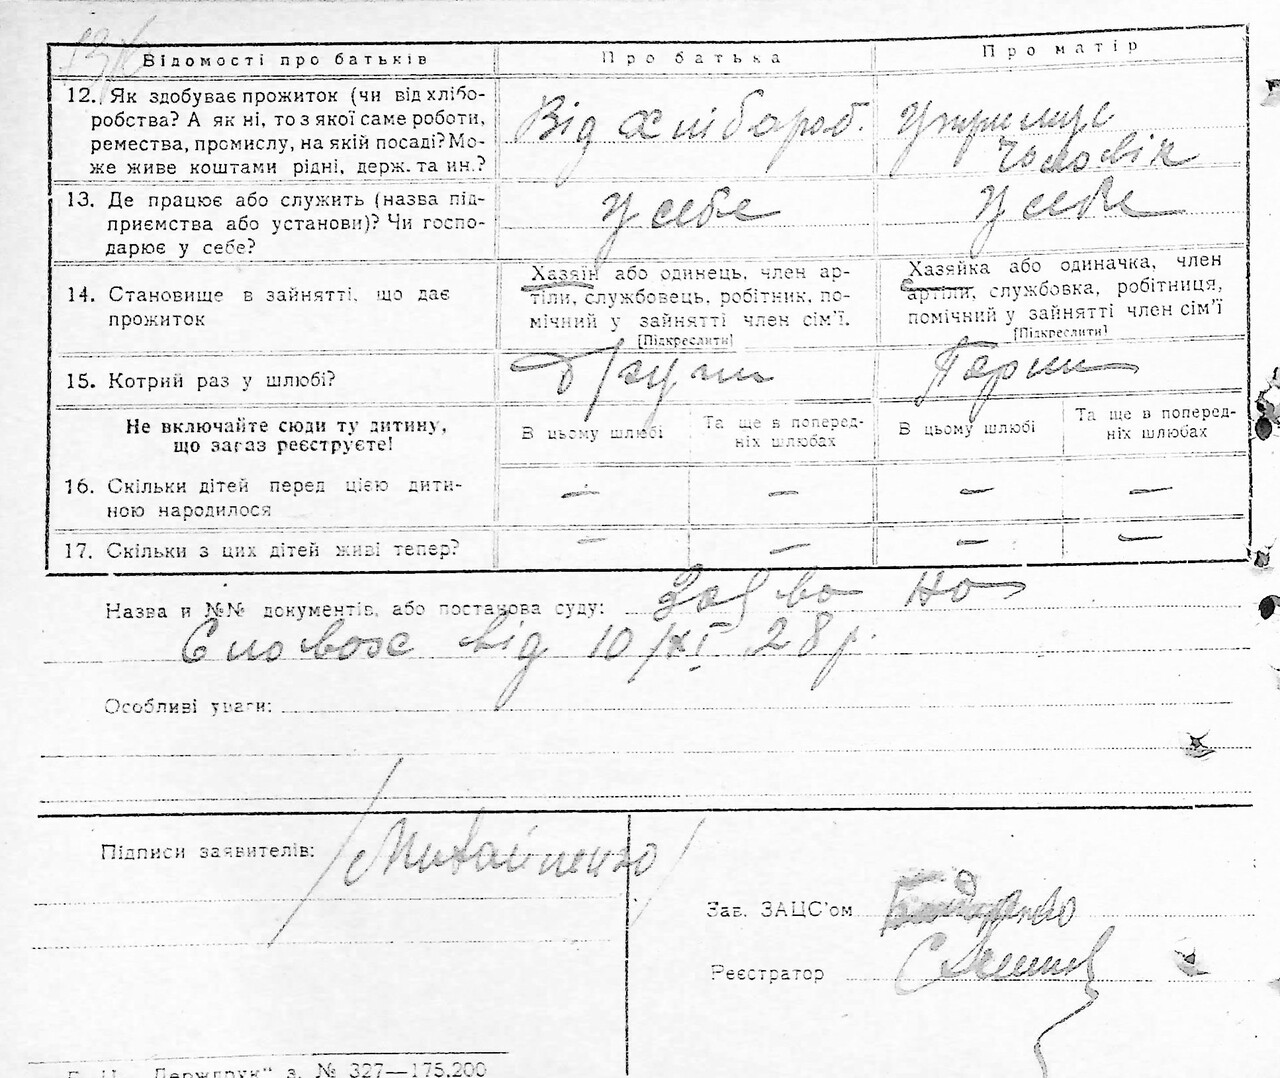 Відомості про батьків
Про батька
Про матір
12. Як здобуває прожиток (чи від хлібо-
робства? А як ні, то з якої саме роботи,
ремества, промислу, на якій посаді? Мо-
же живе коштами рідні, держ. та ин.?
Від хлібароб.
утримує
чоловік
13. Де працює або служить (назва під-
приємства або установи)? Чи госпо-
дарює у себе?
У себе
У себе
14. Становище в зайнятті, що дає
прожиток
Хазяїн або одинець, член ар-
тіли, службовець, робітник, по-
мічний у зайнятті член сім'ї.
[Підкреслити]
Хазяйка або одиначка, член
артіли, службовка, робітниця,
помічний у зайнятті член сім'ї
[Підкреслити]
15. Котрий раз у шлюбі?
Другий
Перший
Не включайте сюди ту дитину,
що зараз реєструєте!
В цьому шлюбі
Та ще в поперед-
ніх шлюбах
В цьому шлюбі
Та ще в поперед-
ніх шлюбах
16. Скільки дітей перед цією дити-
ною народилося
— — — —
17. Скільки з цих дітей живі тепер?
— — — —
Назва и №№ документів, або постанова суду: Заява на
словах від 10/XI 28 р.
Особливі уваги:
Підписи заявителів: /Михайленко/
Зав. ЗАЦС'ом Бондаренко
Реєстратор
Держдрук" з. № 327—175.200